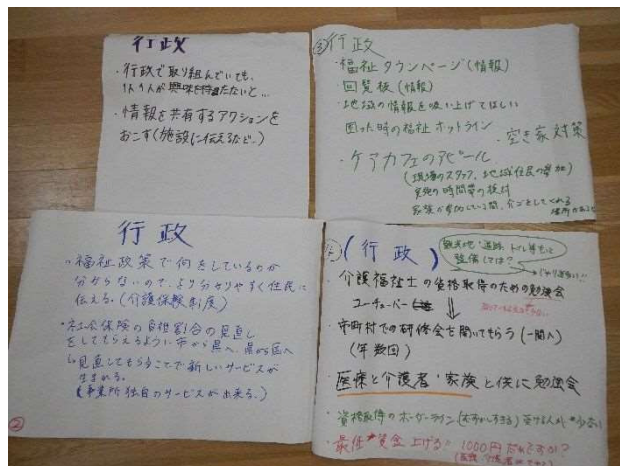 行政
・行政で取り組んでいても、
1人1人が興味を持たないと…
・情報を共有するアクションを
おこす(施設に伝えるなど…)
③行政
・福祉タウンページ(情報)
回覧板(情報)
・地域の情報を吸い上げてほしい
困った時の福祉ホットライン
・空き家対策
・ケアカフェのアピール
(現場のスタッフ、地域住民の参加)
行政
福祉政策で何をしているのか
分からないので、より分かりやすく住民に
伝える。(介護保険制度)
社会保険の自担割合の見直し
をしてもらえるように市から県へ、県から国へ
見直してもらうことで新しいサービスが
生まれる。
(事業所独自のサービスが出来る。)
②
(行政)
整備しては?
介護福祉士の資格取得のための勉強会
ユーチューバー
市町村での研修会を開いてもらう(一般人)
(年数回)
・医療と介護者・家族と供に勉強会
資格取得のボーダーライン
最低賃金上げる 1000円